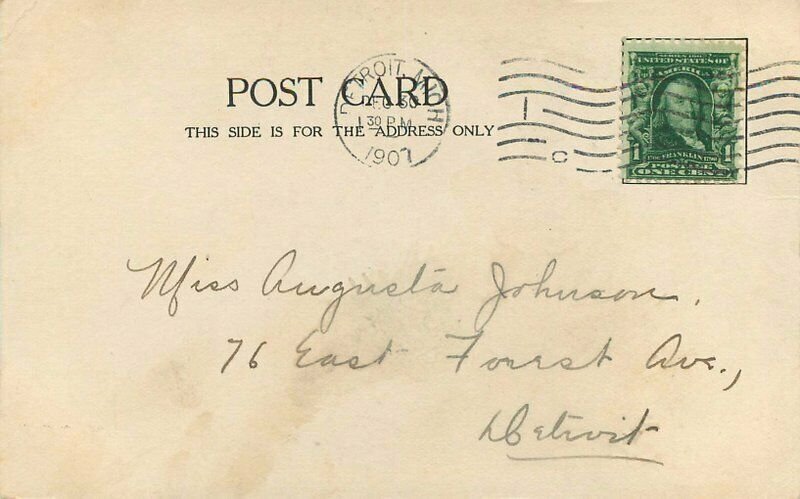 POST CARD
THIS SIDE IS FOR THE ADDRESS ONLY
DETROIT, MICH
DEC 30
1 30 P.M.
1907
SERIES 1902
UNITED STATES OF
AMERICA
1 1
FRANKLIN 1790
POSTAGE
ONE CENT
Miss Augusta Johnson.
76 East Forest Ave.,
Detroit